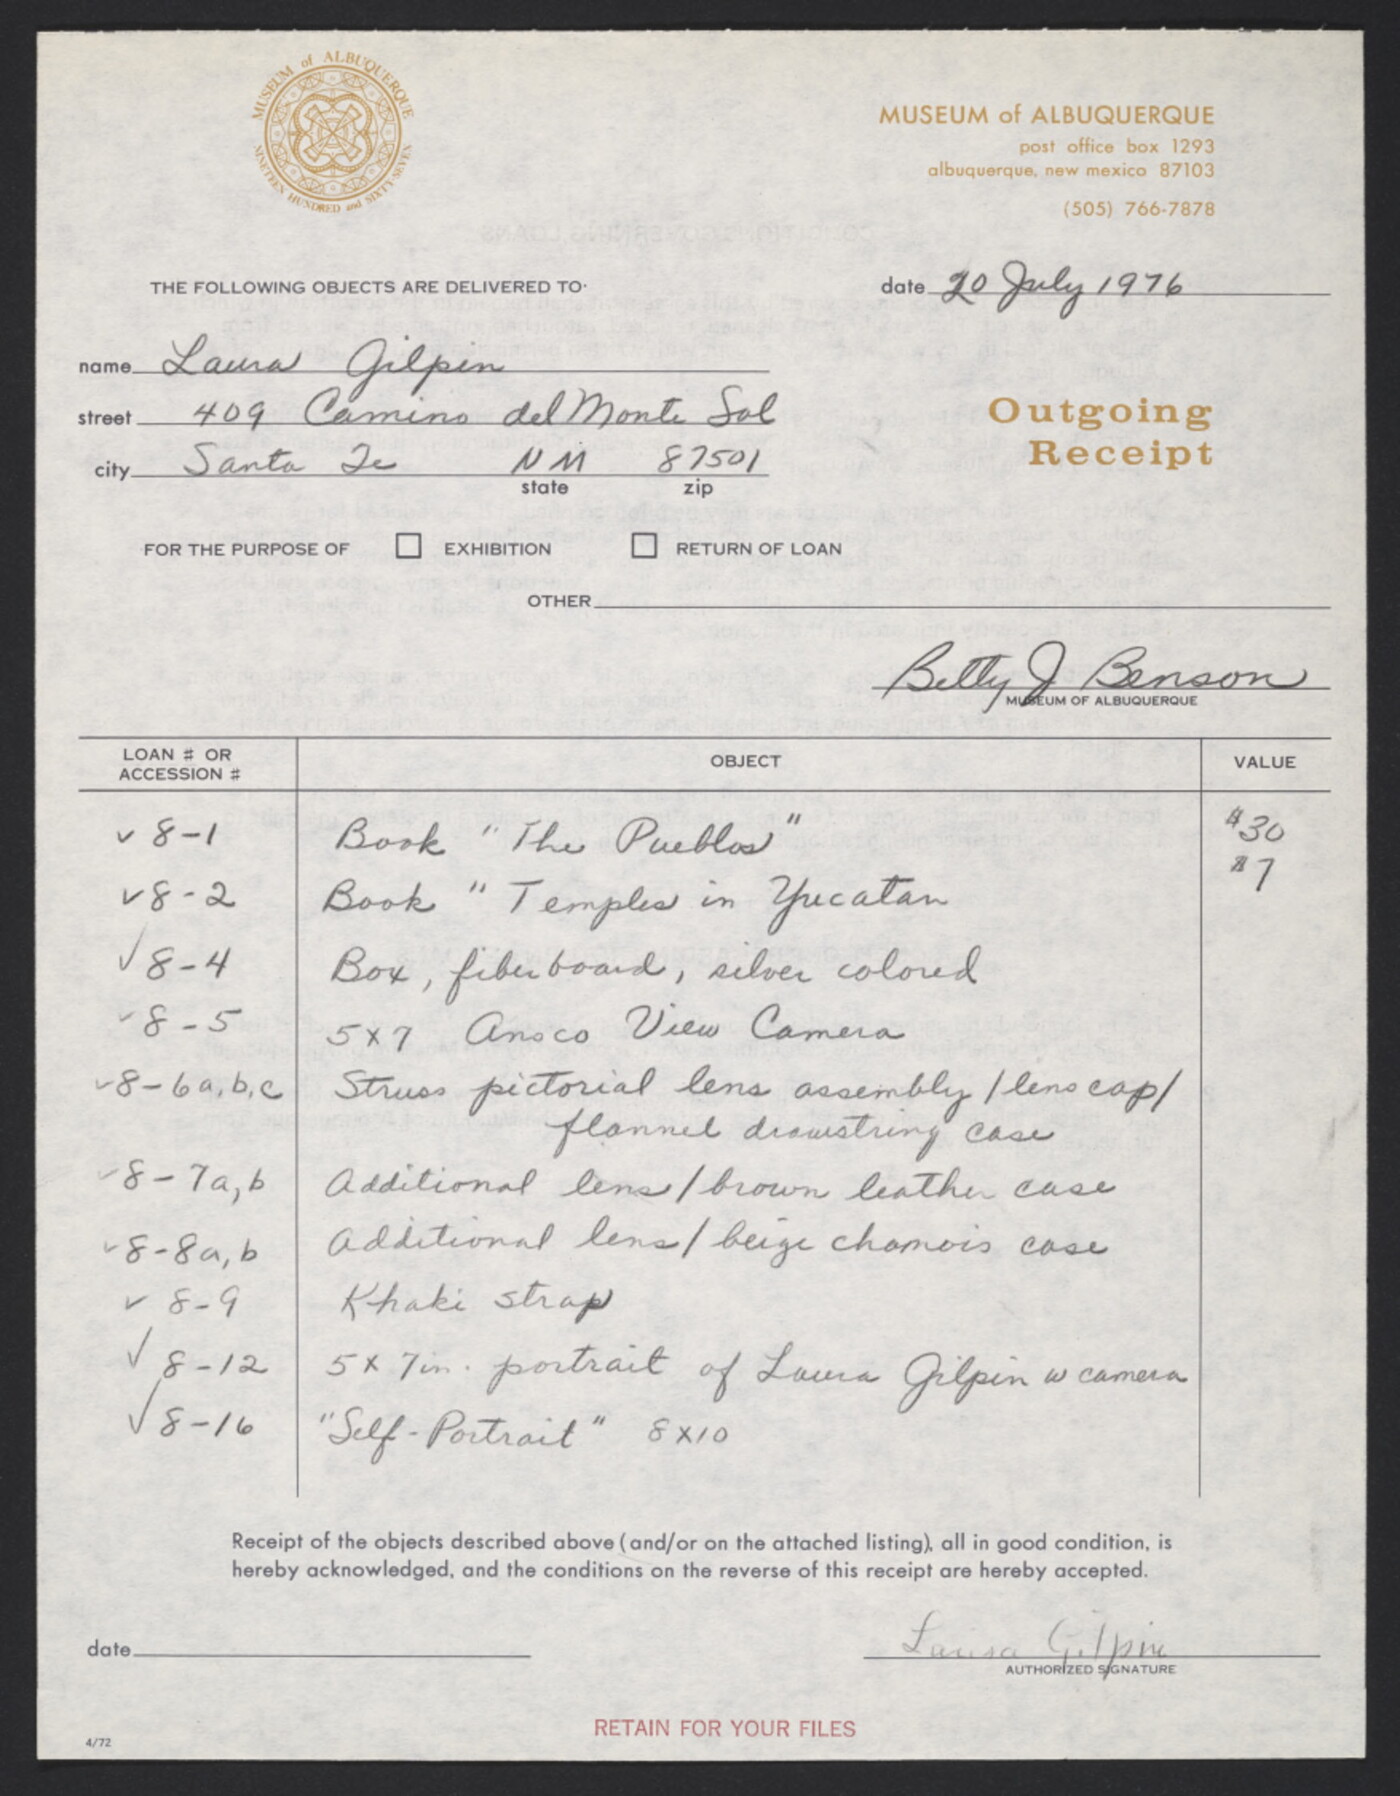 MUSEUM of ALBUQUERQUE
NINETEEN HUNDRED and SIXTY-SEVEN
MUSEUM of ALBUQUERQUE
post office box 1293
albuquerque, new mexico 87103
(505) 766-7878
THE FOLLOWING OBJECTS ARE DELIVERED TO:
date 20 July 1976
name Laura Gilpin
street 409 Camino del Monte Sol
city Santa Fe NM 87501
state zip
Outgoing
Receipt
FOR THE PURPOSE OF ☐ EXHIBITION ☐ RETURN OF LOAN
OTHER
Betty J Benson
MUSEUM OF ALBUQUERQUE
LOAN # OR ACCESSION # OBJECT VALUE
✓ 8-1 Book "The Pueblos" $30
✓ 8-2 Book "Temples in Yucatan $7
✓ 8-4 Box, fiberboard, silver colored
✓ 8-5 5x7 Ansco View Camera
✓ 8-6a,b,c Struss pictorial lens assembly / lens cap /
flannel drawstring case
✓ 8-7a,b Additional lens / brown leather case
✓ 8-8a,b Additional lens / beige chamois case
✓ 8-9 Khaki strap
✓ 8-12 5x7in. portrait of Laura Gilpin w camera
✓ 8-16 "Self-Portrait" 8x10
Receipt of the objects described above (and/or on the attached listing), all in good condition, is
hereby acknowledged, and the conditions on the reverse of this receipt are hereby accepted.
date
Laura Gilpin
AUTHORIZED SIGNATURE
RETAIN FOR YOUR FILES
4/72